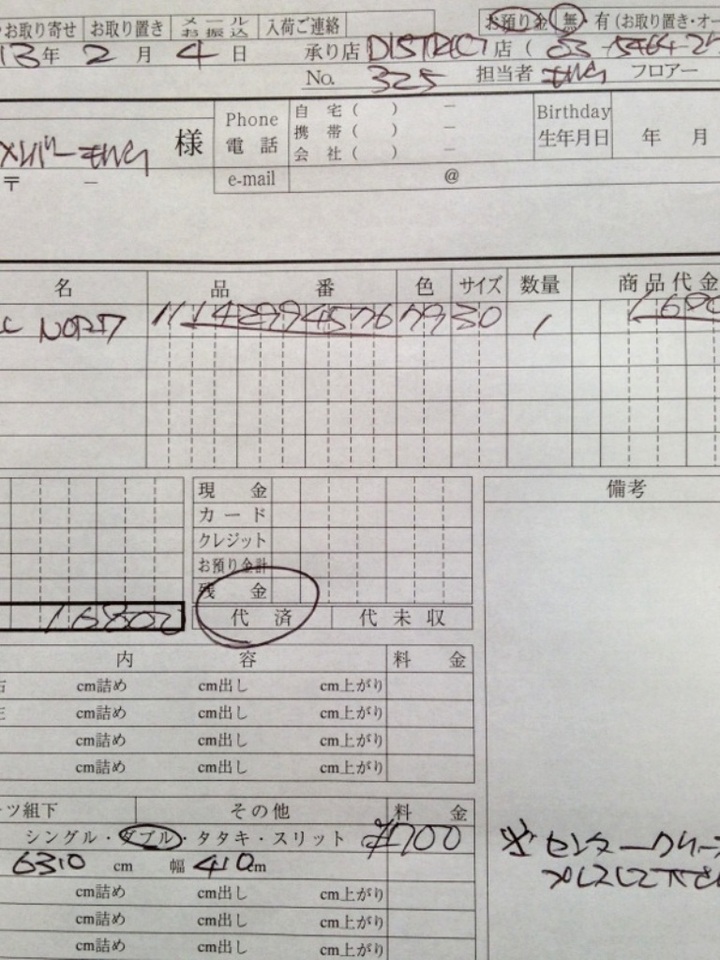 お取り寄せ お取り置き メール お振込 入荷ご連絡 お預り金 無・有 (お取り置き・オー
13年 2月 4日 承り店 DISTRICT店 ( 03-5464-2
No. 325 担当者 フロアー
様 Phone 電話 自宅( ) － Birthday 生年月日 年 月
携帯( ) －
会社( ) －
〒 － e-mail @
名 品番 色 サイズ 数量 商品代金
NORD 11142994576 79 30 1 1680
現金 備考
カード
クレジット
お預り金計
残金
16800 代済 代未収
内容 料金
cm詰め cm出し cm上がり
cm詰め cm出し cm上がり
cm詰め cm出し cm上がり
cm詰め cm出し cm上がり
ツ組下 その他 料金
シングル・ダブル・タタキ・スリット ¥700
cm 幅 cm
※センタークリース
プレスして下さ
cm詰め cm出し cm上がり
cm詰め cm出し cm上がり
cm詰め cm出し cm上がり